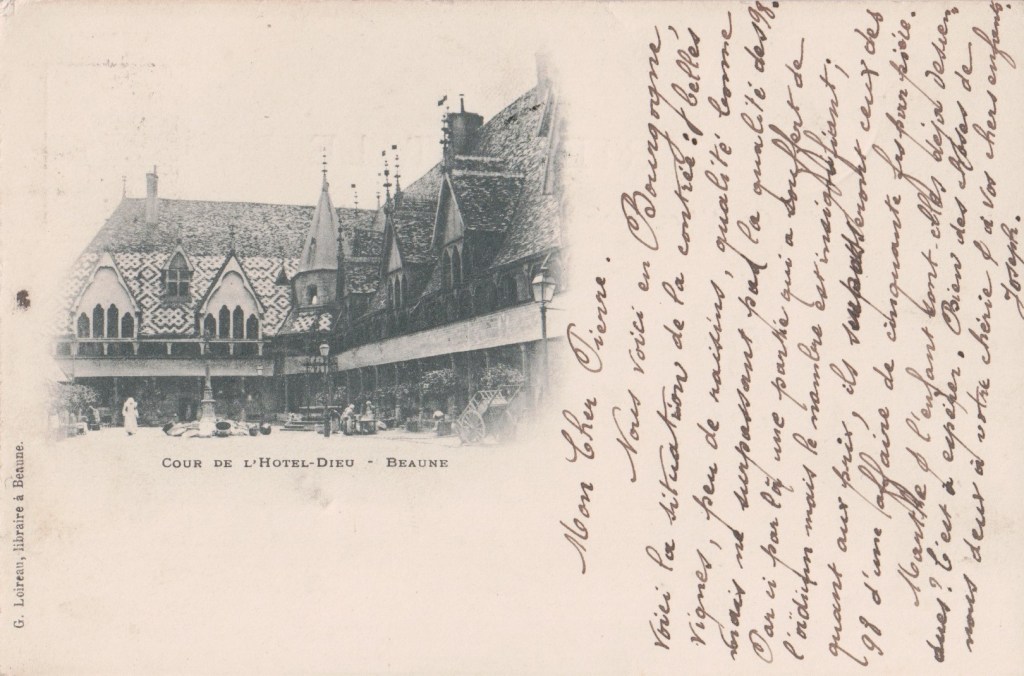 COUR DE L'HOTEL-DIEU - BEAUNE
G. Loireau, libraire à Beaune.
Mon Cher Pierre.
Nous voici en Bourgogne,
voici la situation de la contrée: belles
vignes, peu de raisins, qualité bonne
mais ne surpassant pas la qualité des 98.
Par ci par là une partie qui a souffert de
l'oïdium mais le nombre est insignifiant,
quant aux prix, ils surpasseront ceux des
98 d'une affaire de cinquante frs par pièce.
Marthe & l'enfant sont-elles déjà descen
dues? C'est à espérer. Bien des choses de
nous deux à votre chérie & à vos chers enfants.
Joseph.